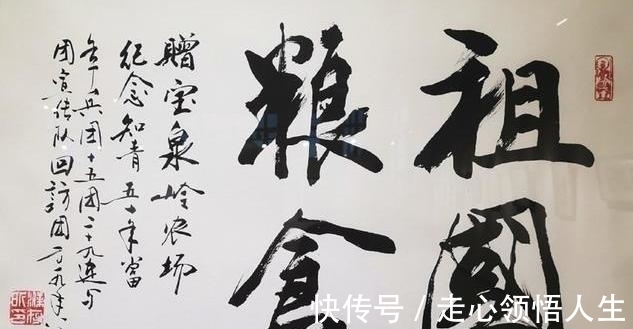 祖國
粮食
赠宝泉岭农场
纪念知青五十年当
年兵团十五团二十九连与
团宣传队回访团
快传号 / 走心领悟人生